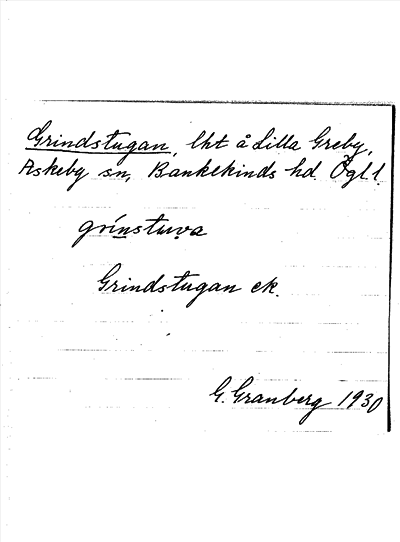 Grindstugan, lht å Lilla Greby,
Askeby sn, Bankekinds hd. Ögl.l.
grínstuva
Grindstugan ek.
G. Granberg 1930